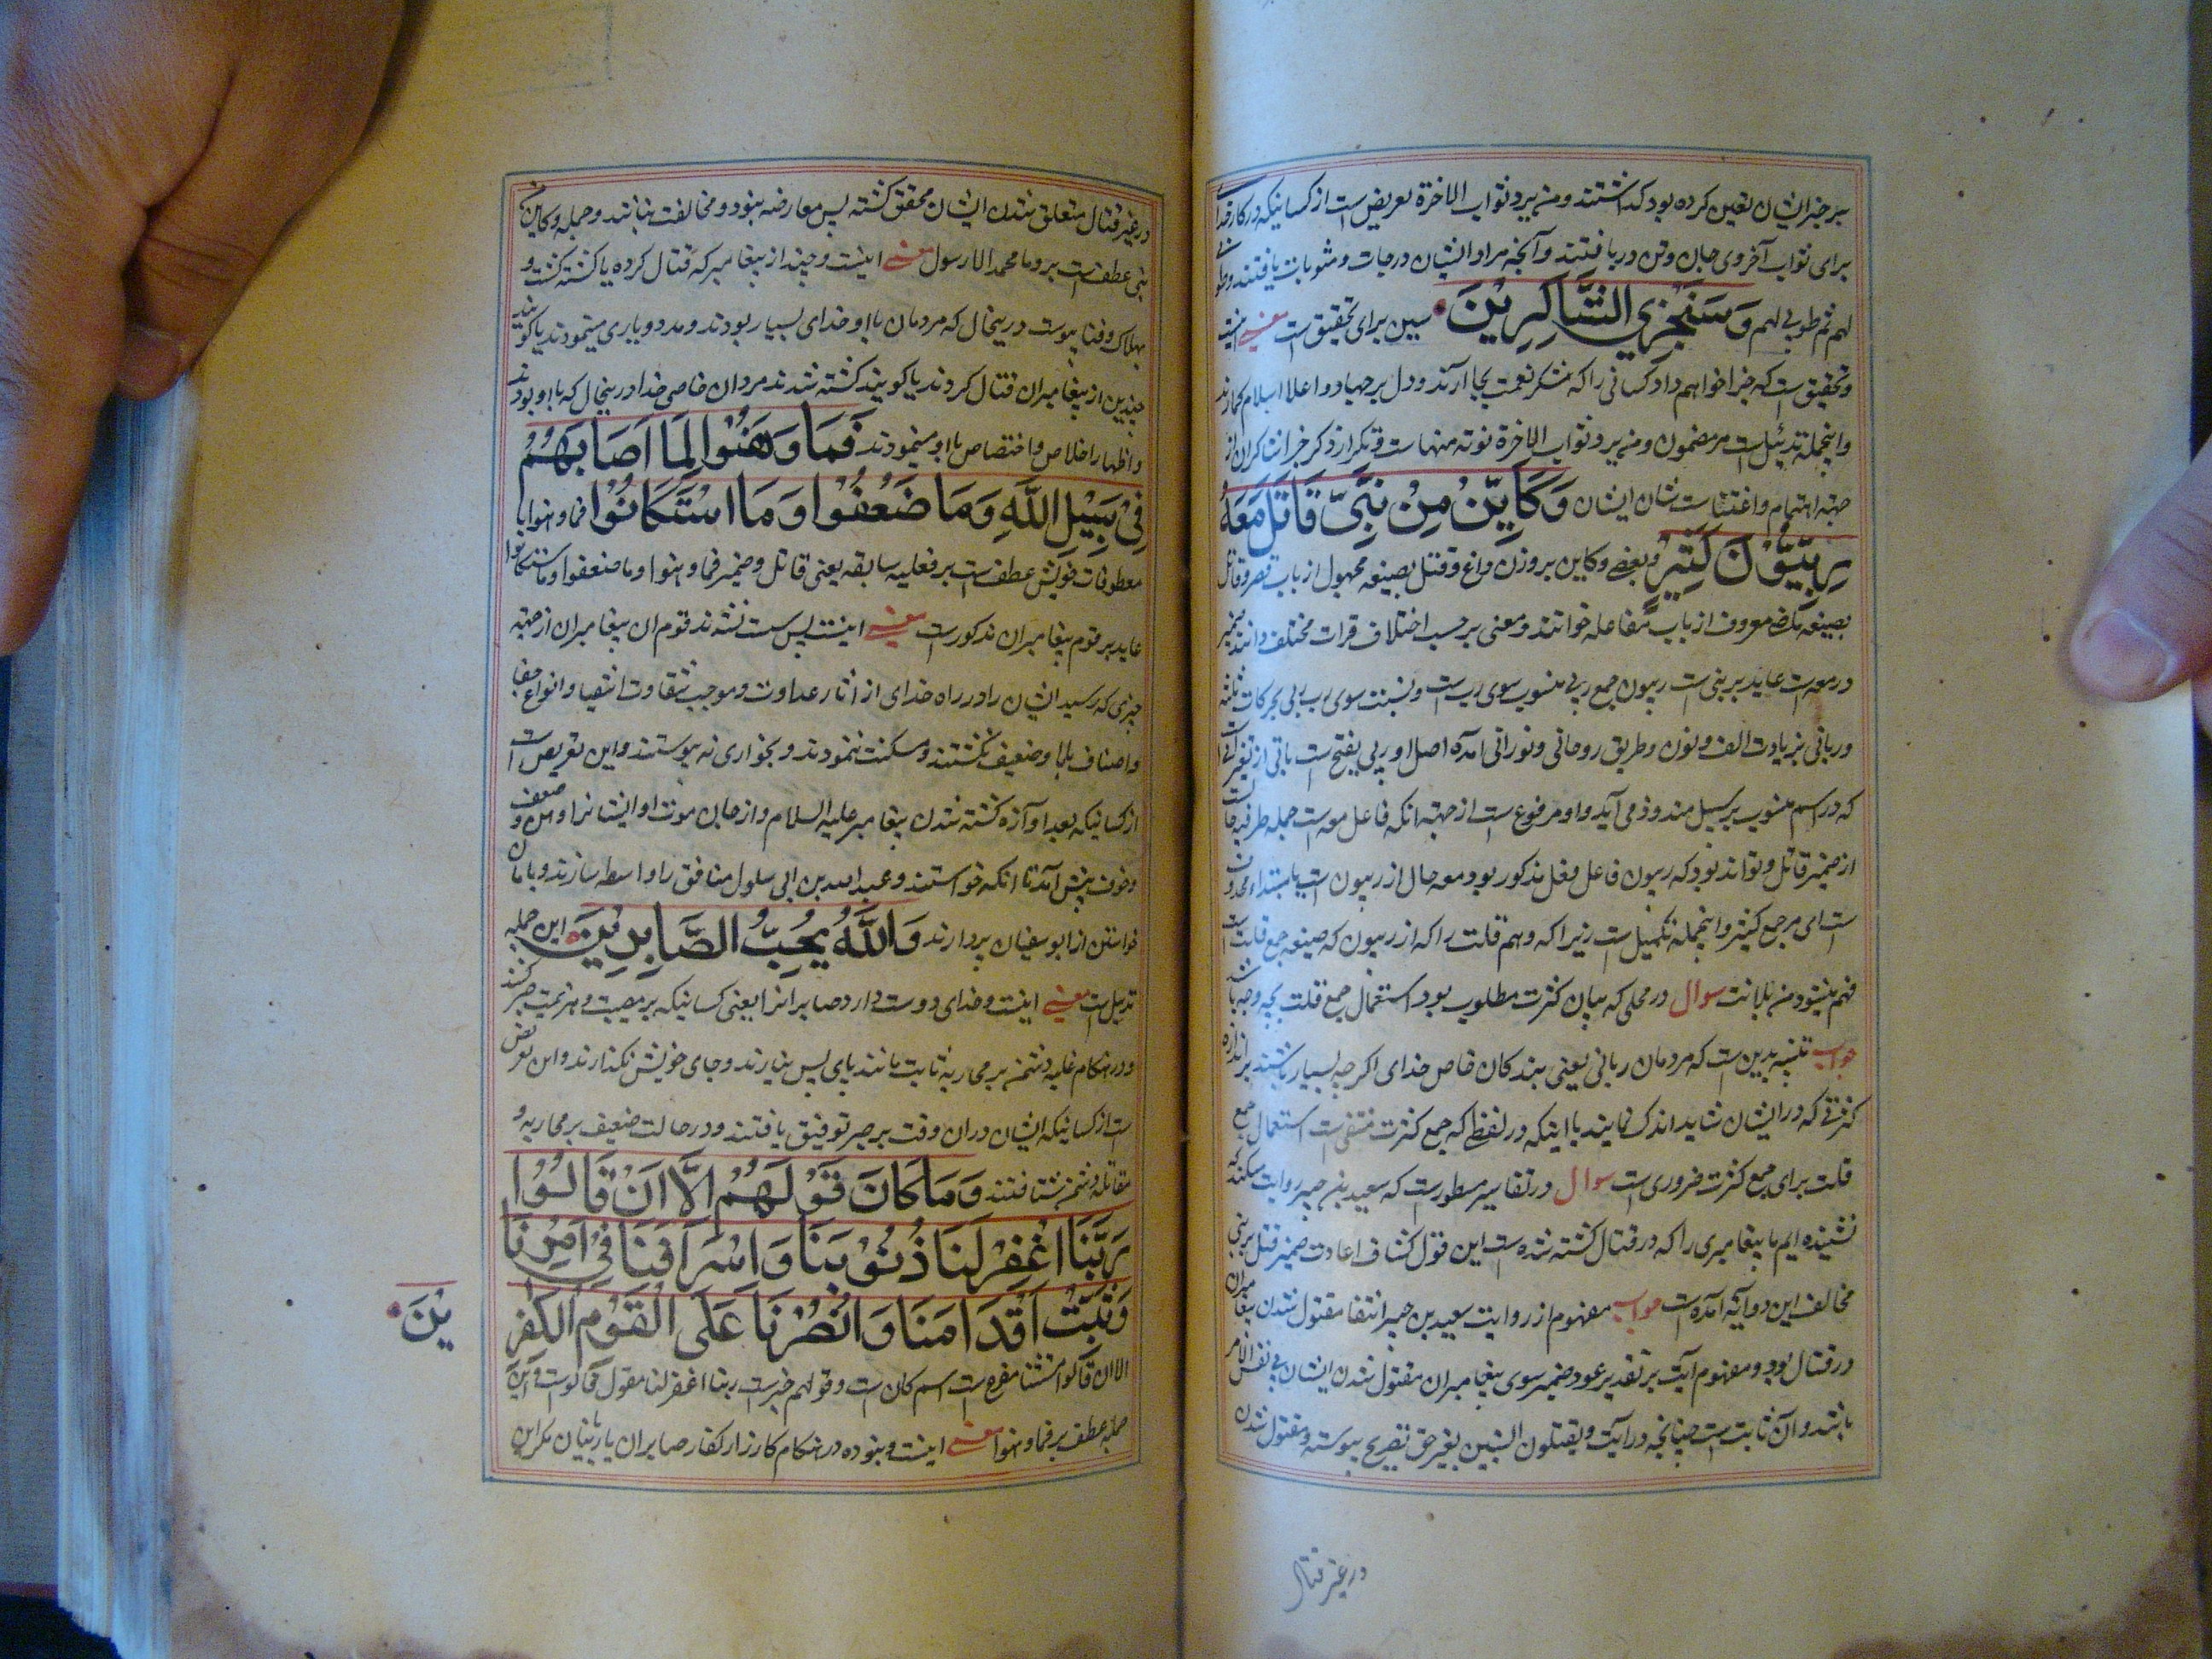 برجز ایشان تعین کرده بود کذاشتند و من یرد ثواب الاخرة تعریض است از کسانیکه در کار خدا
برای ثواب آخروی جان و تن دریافتند و آنچه مراد ایشان درجات و مثوبات یافتند
لهم ثم طوبی لهم وَسَنَجْزِي الشَّاكِرِيْنَ سین برای تحقیق است معنی اینست
و تحقیق است که جزا خواهم داد کسانی را که شکر نعمت بجا آرند و دل بر جهاد و اعلا اسلام کمارند
و اینجمله تذئیل است مر مضمون و من یرد ثواب الاخرة نوته منها ست و تکرار ذکر جزا شاکران از
جهة اهتمام و اعتنا ست بشان ایشان وَكَاَيِّنْ مِنْ نَبِيٍّ قَاتَلَ مَعَهُ
رِبِّيُّوْنَ كَثِيْرٌ و بعضی و کاین بروزن و قتل بصیغه مجهول از باب نصر و قاتل
بصیغه ماضی معروف از باب مفاعله خوانند و معنی بر حسب اختلاف قرات مختلف دانند ضمیر
در معه است عاید بر نبی است ربیون جمع ربی منسوب سوی رب است و نسبت سوی رب ربی بحرکات ثلثه
و ربانی بزیادت الف و نون و طریق روحانی و نورانی آمده اصل او ربی بفتح است باقی از تغیراتی
که در اسم منسوب بر سبیل شذوذ می آید و او مرفوع است از جهة انکه فاعل معه است جمله ظرفیه حال است
از ضمیر قاتل و تواند بود که ربیون فاعل فعل مذکور بود و معه حال از ربیون است یا مبتداء محذوف
است ای مرجع کثیر و اینجمله تکمیل است زیرا که وهم قلت را که از ربیون که صیغه جمع قلت است
فهم میشود سوال در محلی که بیان کثرت مطلوب بود استعمال جمع قلت بچه وجه باشد
جواب تنبیه بدین است که مردمان ربانی یعنی بندکان خاص خدای اکرچه بسیار باشند بر اندازه
کثرتی که در ایشان شاید اندک نمایند با اینکه در لفظی که جمع کثرت منتفی است استعمال جمع
قلت برای جمع کثرت ضروری است سوال در تفاسیر مسطور است که سعید بن جبیر روایت میکند که
نشنیده ایم ما پیغامبری را که در قتال کشته شده است این قول کشاف اعادت ضمیر قتل بر نبی
مخالف این دو آیه آمده است جواب مفهوم از روایت سعید بن جبیر انتفا مقتول شدن پیغامبران
در قتال بود و مفهوم آیت بر تقدیر عود ضمیر سوی پیغامبران مقتول شدن ایشان فی نفس الامر
باشد و آن ثابت است چنانچه در آیت و یقتلون النبین بغیر حق تصریح پیوسته و مقتول شدن
در غیر قتال
در غیر قتال متعلق شدن ایشان محقق کشته پس معارضه نبود و مخالفت نباشد و جمله و کاین من
نبی عطف است بر و ما محمد الا رسول معنی اینست و چند از پیغامبر که قتال کرده یا کشته کشت و
بهلاک و فنا پیوست در ینحال که مردمان با او خدای بسیار بودند و مدد و یاری مینمودند یا کویند
چندین از پیغامبران قتال کردند یا کویند کشته شدند مردان خاص خدا در ینحال که با او بودند
و اظهار اخلاص و اختصاص با او مینمودند فَمَا وَهَنُوْا لِمَا اَصَابَهُمْ
فِيْ سَبِيْلِ اللّٰهِ وَمَا ضَعُفُوْا وَمَا اسْتَكَانُوْا فما وهنوا با
معطوفات خویش عطف است بر فعلیه سابقه یعنی قاتل و ضمیر فما وهنوا و ما ضعفوا و ما استکانوا
عاید بر قوم پیغامبران مذکور است معنی اینست پس سست نشدند قوم ان پیغامبران از جهة
چیزی که رسید ایشان را در راه خدای از آثار عداوت و موجب شقاوت اشقیا و انواع جفا
و اصناف بلا و ضعیف نکشتند و مسکنت ننمودند و بخواری نه پیوستند و این تعریض است
از کسانیکه بعد آوازه کشته شدن پیغامبر علیه السلام و از جان موت او ایشانرا وهن و ضعف
و خوف پیش آمد تا انکه خواستند و عبد الله بن ابی سلول منافق را واسطه سازند و بامان
خواستن از ابوسفیان پردازند وَاللّٰهُ يُحِبُّ الصَّابِرِيْنَ این جمله
تذیل است معنی اینست و خدای دوست دارد صابرانرا یعنی کسانیکه بر مصیبت و هزیمت صبر کنند
و در هنکام غلبه دشمن بر محاربه ثابت مانند پای پس نیارند و جای خویش نکذارند و این تعریض
است از کسانیکه ایشان دران وقت بر صبر توفیق یافتند و در حالت ضعیف بر محاربه و
مقاتله دشمن شتافتند وَمَا كَانَ قَوْلَهُمْ اِلَّا اَنْ قَالُوْا
رَبَّنَا اغْفِرْ لَنَا ذُنُوْبَنَا وَاِسْرَافَنَا فِيْ اَمْرِنَا
وَثَبِّتْ اَقْدَامَنَا وَانْصُرْنَا عَلَى الْقَوْمِ الْكٰفِرِ
يْنَ
الا ان قالوا مستثنا مفرغ است اسم کان است و قولهم خبر است ربنا اغفر لنا مقول قالوا است و این
جمله عطف بر فما وهنوا معنی اینست و نبوده در هنکام کارزار کفار صابران یا ربیان مکر این